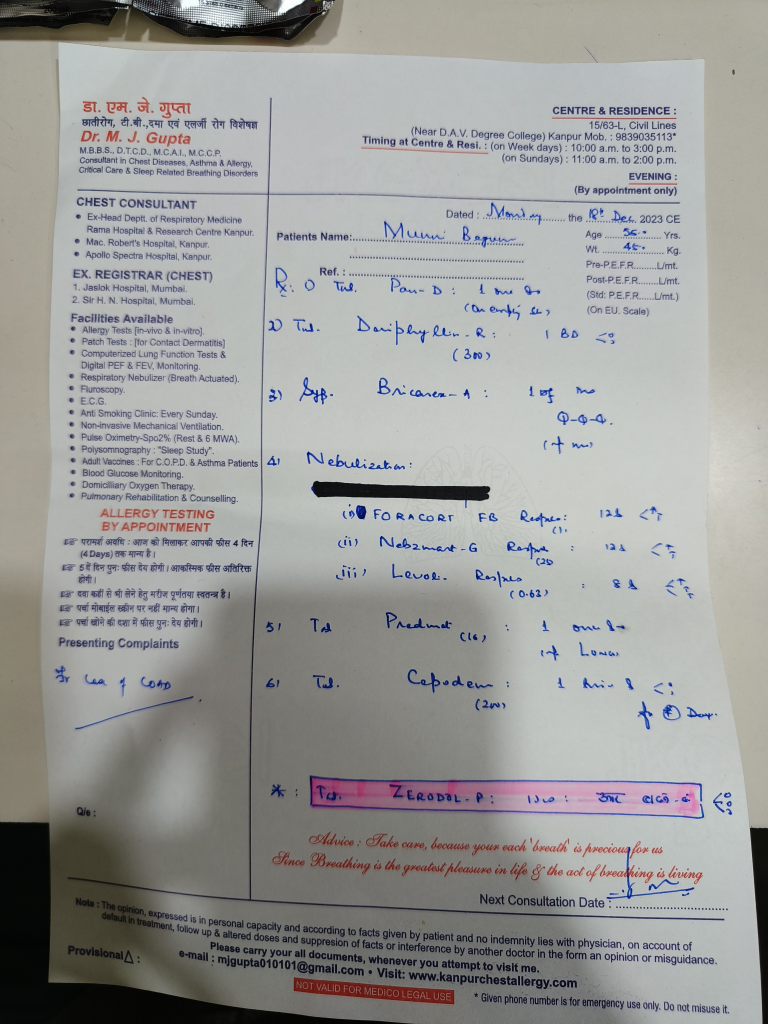 डा. एम. जे. गुप्ता
छातीरोग, टी.बी.,दमा एवं एलर्जी रोग विशेषज्ञ
Dr. M. J. Gupta
M.B.B.S., D.T.C.D., M.C.A.I., M.C.C.P.
Consultant in Chest Diseases, Asthma & Allergy,
Critical Care & Sleep Related Breathing Disorders
CENTRE & RESIDENCE :
15/63-L, Civil Lines
(Near D.A.V. Degree College) Kanpur Mob. : 9839035113*
Timing at Centre & Resi. : (on Week days) : 10:00 a.m. to 3:00 p.m.
(on Sundays) : 11:00 a.m. to 2:00 p.m.
EVENING :
(By appointment only)
CHEST CONSULTANT
• Ex-Head Deptt. of Respiratory Medicine
Rama Hospital & Research Centre Kanpur.
• Mac. Robert's Hospital, Kanpur.
• Apollo Spectra Hospital, Kanpur.
EX. REGISTRAR (CHEST)
1. Jaslok Hospital, Mumbai.
2. Sir H. N. Hospital, Mumbai.
Facilities Available
• Allergy Tests [in-vivo & in-vitro].
• Patch Tests : [for Contact Dermatitis]
• Computerized Lung Function Tests &
Digital PEF & FEV, Monitoring.
• Respiratory Nebulizer (Breath Actuated).
• Fluroscopy.
• E.C.G.
• Anti Smoking Clinic: Every Sunday.
• Non-invasive Mechanical Ventilation.
• Pulse Oximetry-Spo2% (Rest & 6 MWA).
• Polysomnography : "Sleep Study".
• Adult Vaccines : For C.O.P.D. & Asthma Patients
• Blood Glucose Monitoring.
• Domicilliary Oxygen Therapy.
• Pulmonary Rehabilitation & Counselling.
ALLERGY TESTING
BY APPOINTMENT
परामर्श अवधि : आज को मिलाकर आपकी फीस 4 दिन
(4 Days) तक मान्य है।
5 वें दिन पुनः फीस देय होगी। आकस्मिक फीस अतिरिक्त
होगी।
दवा कहीं से भी लेने हेतु मरीज पूर्णतया स्वतन्त्र है।
पर्चा मोबाईल स्क्रीन पर नहीं मान्य होगा।
पर्चा खोने की दशा में फीस पुनः देय होगी।
Presenting Complaints
COAD
Q/e :
Provisional Δ :
Dated : Monday the 18th Dec 2023 CE
Patients Name: Munni Begum
Age 56 Yrs.
Wt. 45 Kg.
Ref. :
Pre-P.E.F.R. L/mt.
Post-P.E.F.R. L/mt.
(Std: P.E.F.R. L/mt.)
(On EU. Scale)
Rx: 1) Tab. Pan-D : 1
(On empty
2) Tab. Doriphyllin-R : 1 BD
(300)
3) Syp. Bricarex-A : 1
4) Nebulization:
(i) FORACORT FB Respules: 12
(1)
(ii) Nebzmart-G Respules : 12
(25)
(iii) Levol- Respules : 8
(0.63)
5) Tab Predmet : 1
(16)
6) Tab. Cepodem : 1
(200)
Day.
*: Tab. ZERODOL-P :
Advice : Take care, because your each 'breath' is precious for us
Since Breathing is the greatest pleasure in life & the act of breathing is living
Next Consultation Date :
Note : The opinion, expressed is in personal capacity and according to facts given by patient and no indemnity lies with physician, on account of
default in treatment, follow up & altered doses and suppresion of facts or interference by another doctor in the form an opinion or misguidance.
Please carry your all documents, whenever you attempt to visit me.
e-mail : mjgupta010101@gmail.com • Visit: www.kanpurchestallergy.com
NOT VALID FOR MEDICO LEGAL USE
* Given phone number is for emergency use only. Do not misuse it.